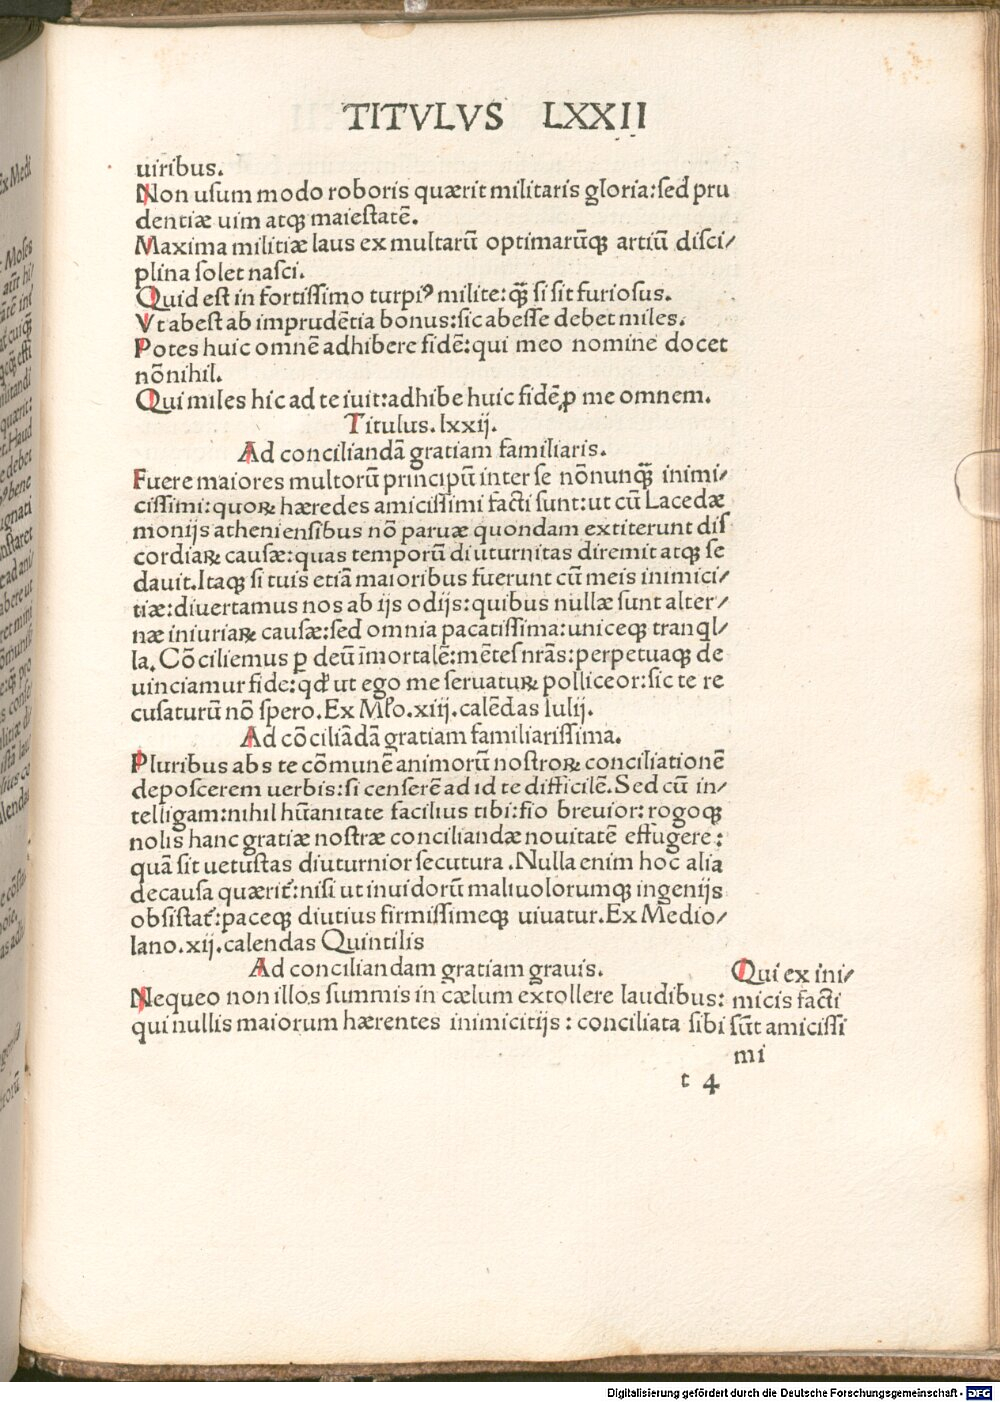 TITVLVS LXXII
uiribus.
Non usum modo roboris quærit militaris gloria: sed pru
dentiæ uim atqꝫ maiestatē.
Maxima militiæ laus ex multarū optimarūqꝫ artiū disci/
plina solet nasci.
Quid est in fortissimo turpiꝰ milite: qꝫ̄ si sit furiosus.
Vt abest ab imprudētia bonus: sic abesse debet miles.
Potes huic omnē adhibere fidē: qui meo nomine docet
nōnihil.
Qui miles hic ad te iuit: adhibe huic fidē ꝓ me omnem.
Titulus. lxxij.
Ad conciliandā gratiam familiaris.
Fuere maiores multorū principū inter se nōnunqꝫ̄ inimi/
cissimi: quoꝝ hæredes amicissimi facti sunt: ut cū Lacedæ
monijs atheniensibus nō paruæ quondam extiterunt dis
cordiaꝝ causæ: quas temporū diuturnitas diremit atqꝫ se
dauit. Itaqꝫ si tuis etiā maioribus fuerunt cū meis inimici/
tiæ: diuertamus nos ab ijs odijs: quibus nullæ sunt alter/
næ iniuriaꝝ causæ: sed omnia pacatissima: uniceqꝫ tranql/
la. Cōciliemus ꝑ deū īmortalē: mētes nr̄as: perpetuaqꝫ de
uinciamur fide: qđ ut ego me seruatuꝝ polliceor: sic te re
cusaturū nō spero. Ex Mło. xiij. calēdas Iulij.
Ad cōciliādā gratiam familiarissima.
Pluribus abs te cōmunē animorū nostroꝝ conciliationē
deposcerem uerbis: si censerē ad id te difficilē. Sed cū in/
telligam: nihil hūanitate facilius tibi: fio breuior: rogoqꝫ
nolis hanc gratiæ nostræ conciliandæ nouitatē effugere:
quā sit uetustas diuturnior secutura. Nulla enim hoc alia
de causa quæriť: nisi ut inuidorū maliuolorumqꝫ ingenijs
obsistať: paceqꝫ diutius firmissimeqꝫ uiuatur. Ex Medio/
lano. xij. calendas Quintilis
Ad conciliandam gratiam grauis.
Nequeo non illos summis in cælum extollere laudibus:
qui nullis maiorum hærentes inimicitijs: conciliata sibi
Qui ex ini/
micis facti
sūt amicissi
mi
t 4
Digitalisierung gefördert durch die Deutsche Forschungsgemeinschaft - DFG